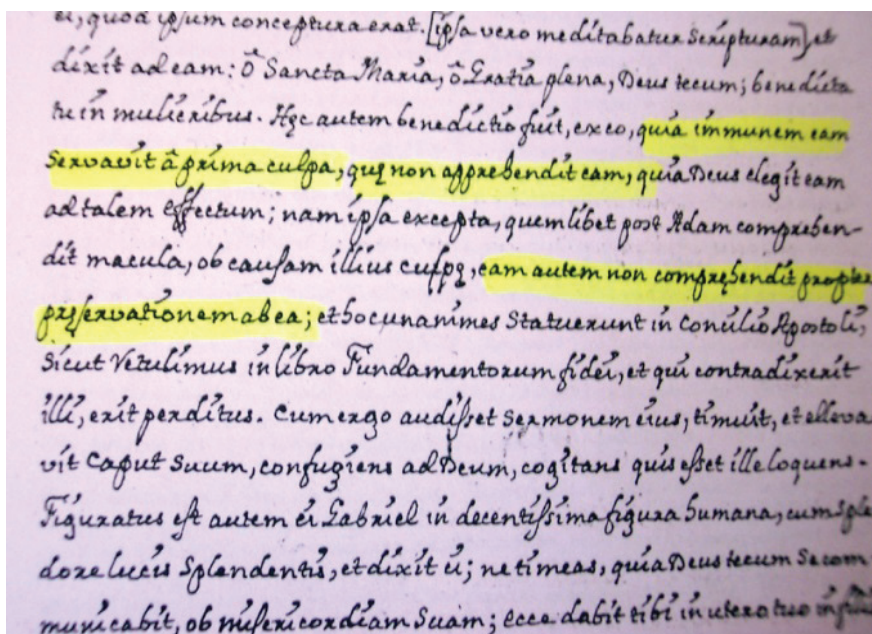 ei, quod ipsum conceptura erat. [ipsa vero meditabatur Scripturam], et
dixit ad eam: ô Sancta Maria, ô Gratia plena, Deus tecum; benedicta
tu in mulieribus. Hęc autem benedictio fuit, ex eo, quia immunem eam
Servavit â prima culpa, quę non apprehendit eam, quia Deus elegit eam
ad talem effectum; nam ipsa excepta, quemlibet post Adam comprehen-
dit macula, ob causam illius culpę, eam autem non comprehendit propter
pręservationem ab ea; et hoc unanimes Statuerunt in Concilio Apostoli,
Sicut Vetulimus in libro Fundamentorum fidei, et qui contradixerit
illi, erit perditus. Cum ergo audisset Sermonem eius, timuit, et elleva
vit Caput Suum, confugiens ad Deum, cogitans quis esset ille loquens.
Figuratus est autem ei Gabriel in decentissima figura humana, cum Sple
dore lucis Splendentis, et dixit ei; ne timeas, quia Deus tecum Se com
municabit, ob misericordiam Suam; ecce dabit tibi in utero tuo